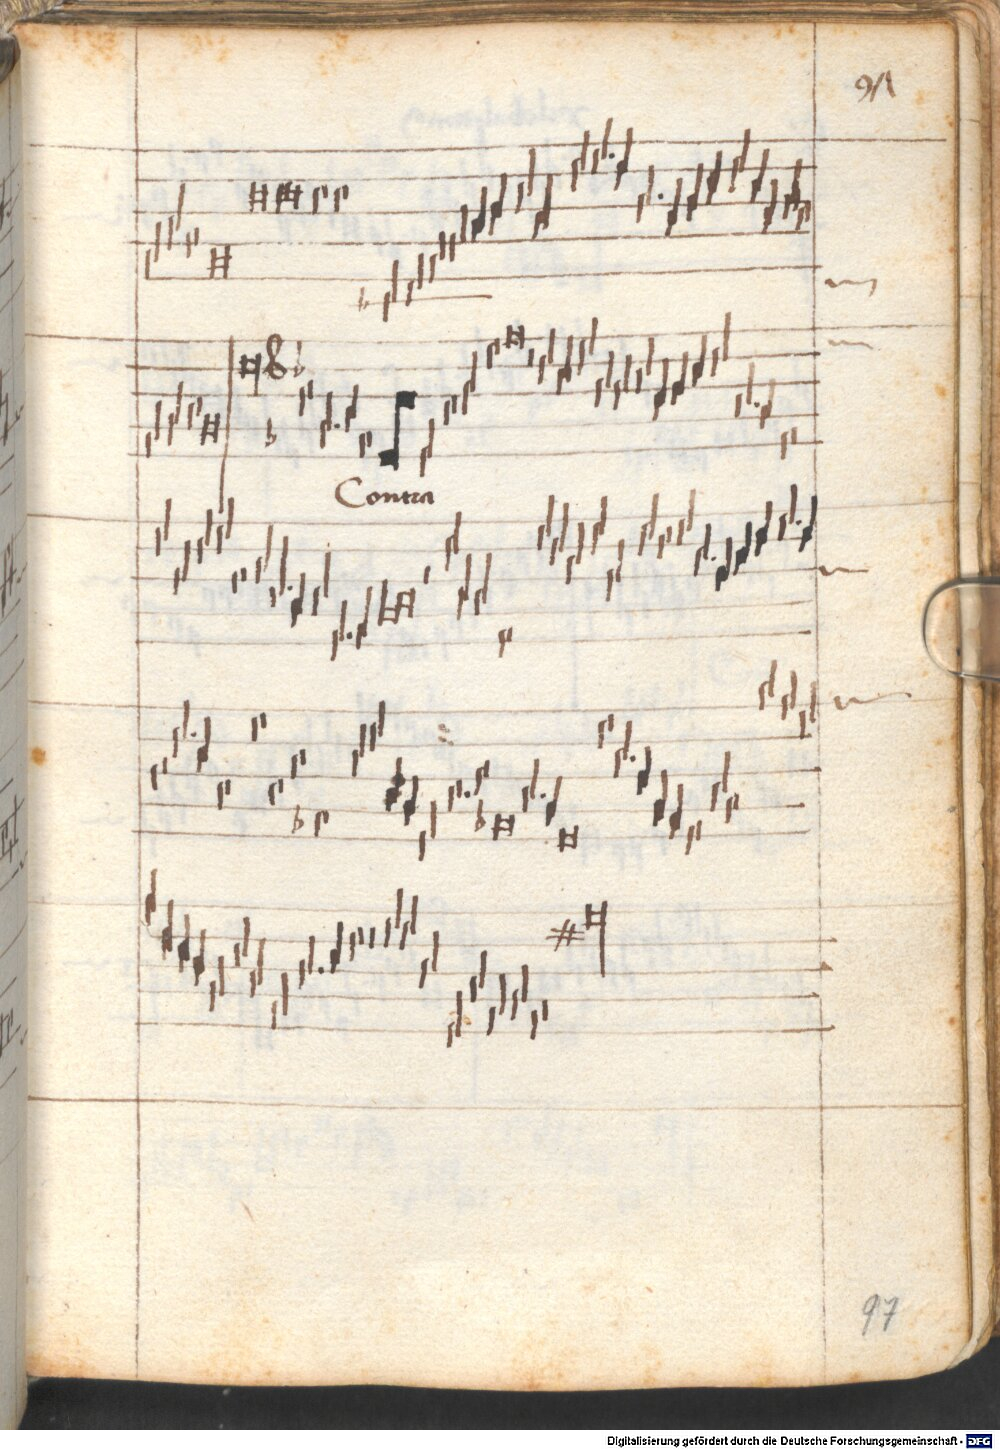 91
Contra
97
Digitalisierung gefördert durch die Deutsche Forschungsgemeinschaft - DFG